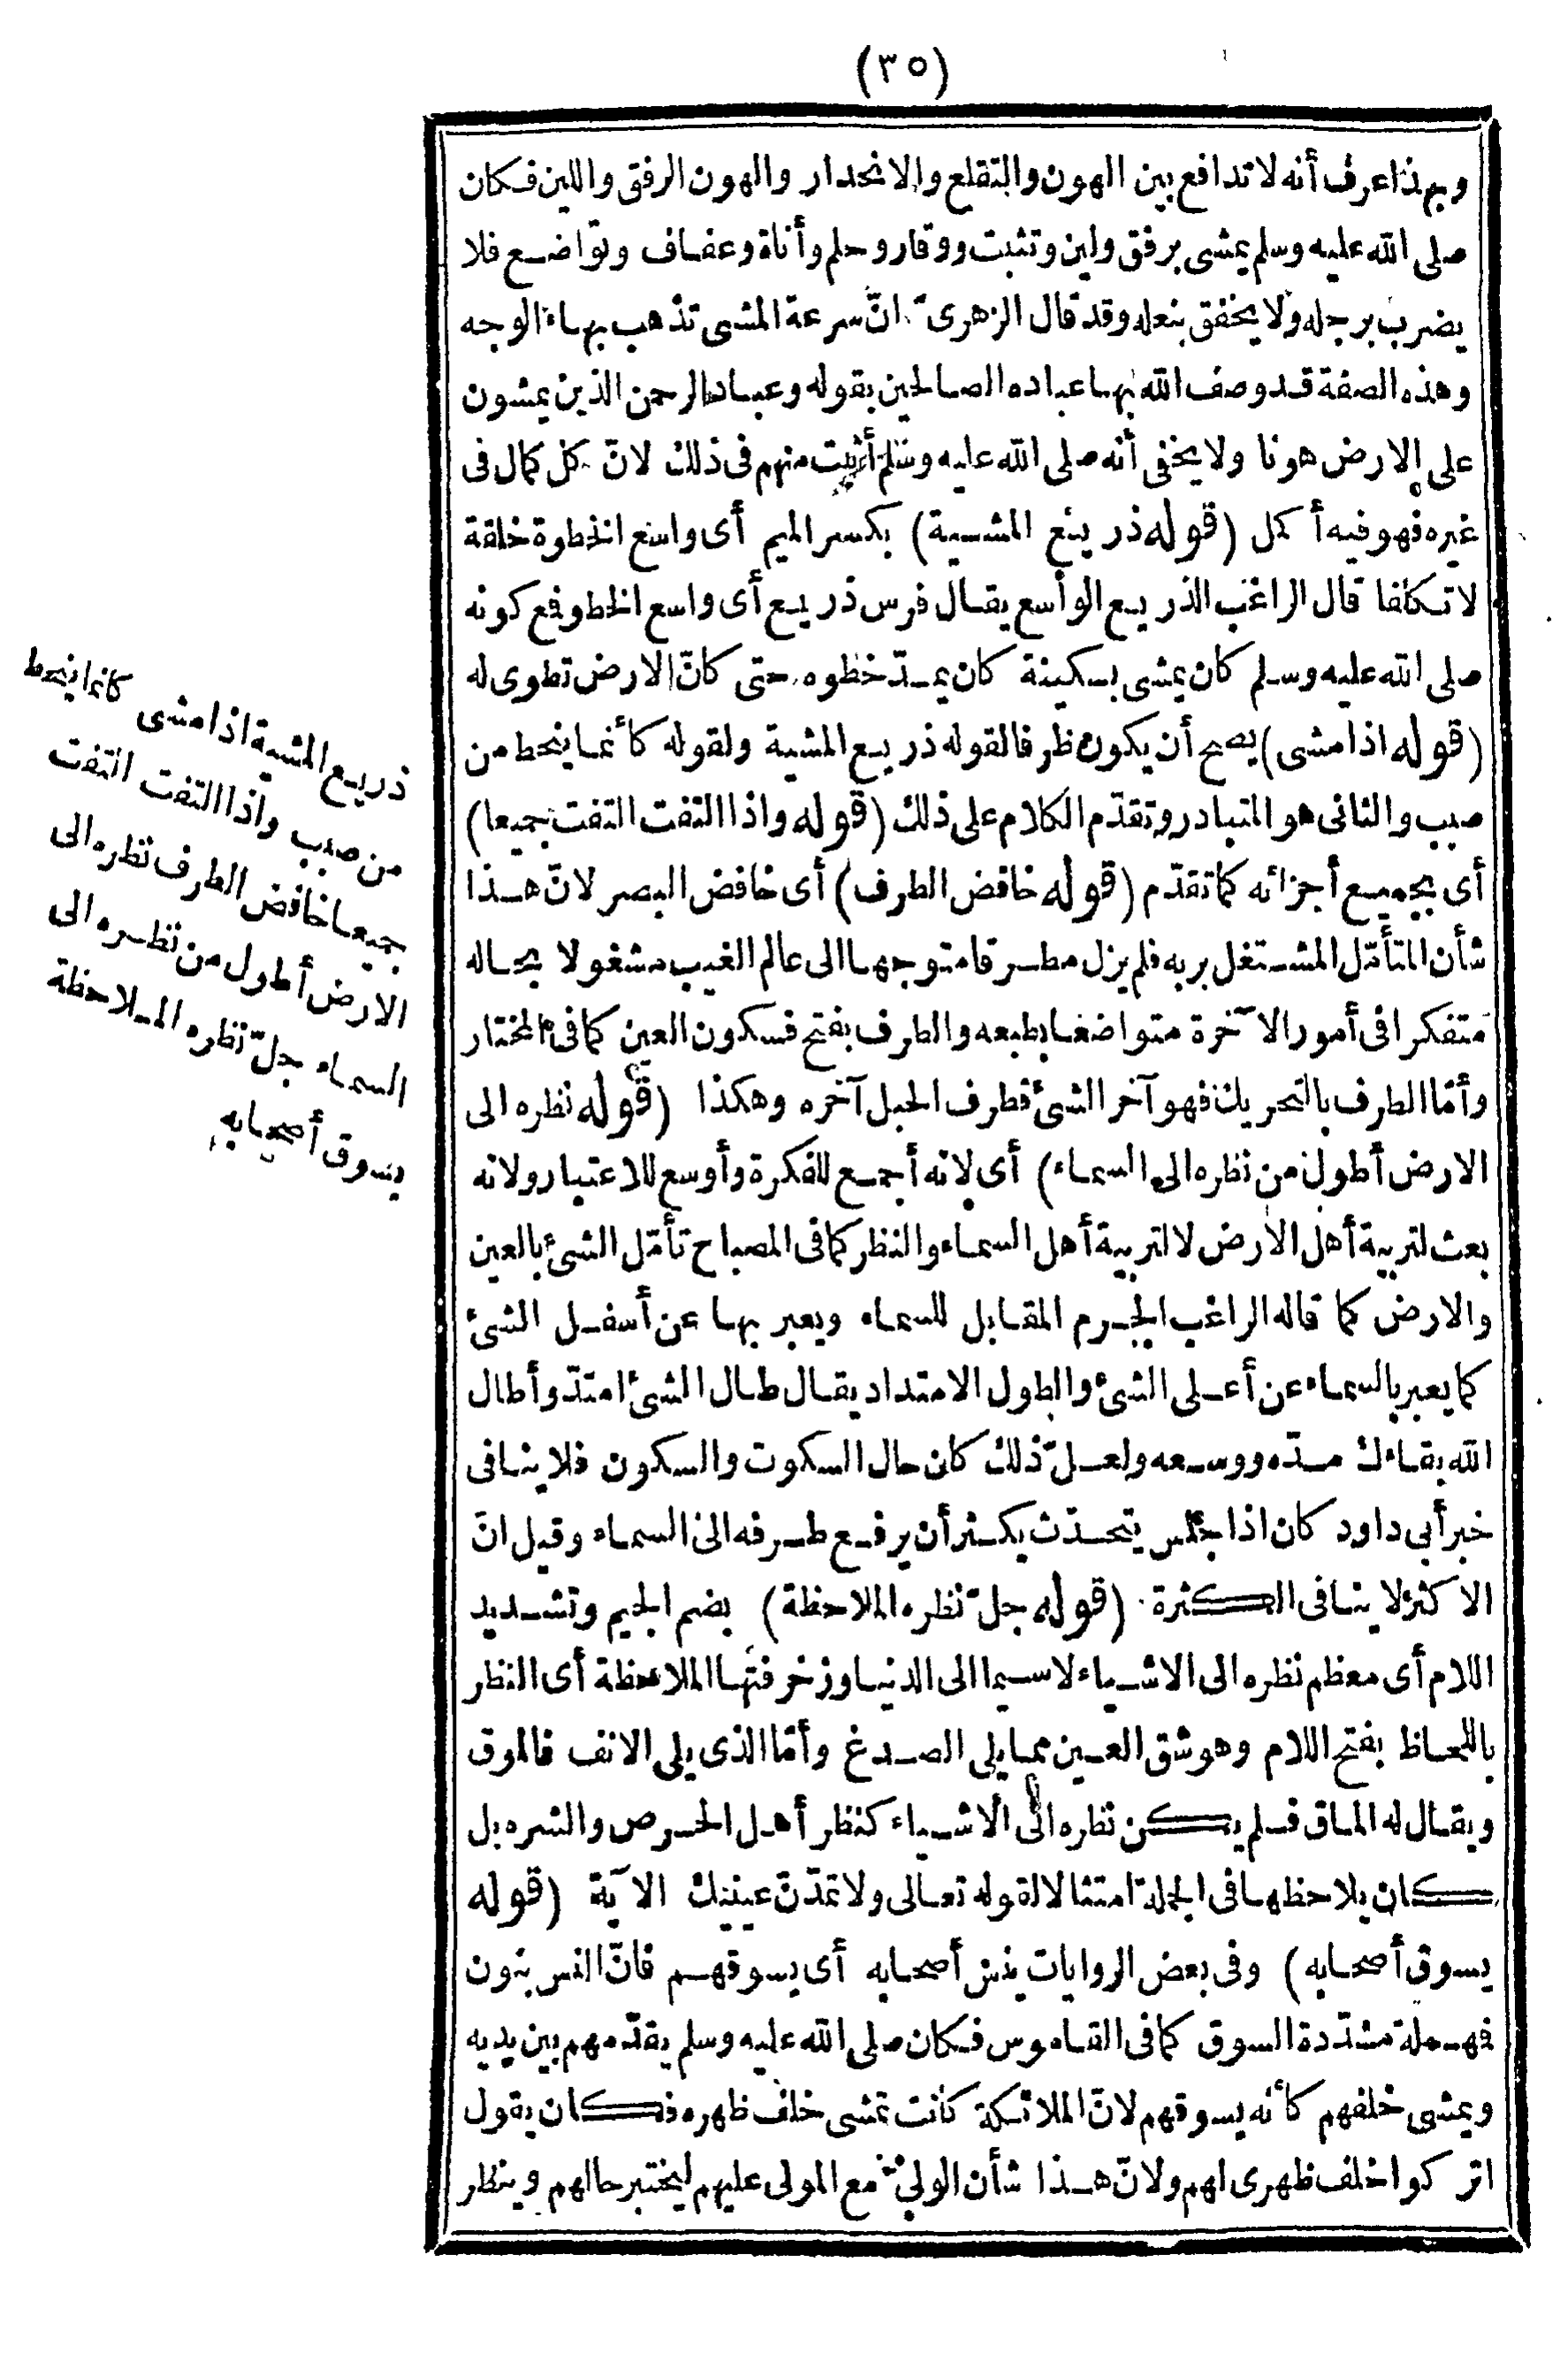 (٣٥)
وبهذا عرف أنه لا تدافع بين الهون والتقلع والانحدار والهون الرفق واللين فكان
صلى الله عليه وسلم يمشى برفق ولين وتثبت ووقار وحلم وأناة وعفاف وتواضع فلا
يضرب برجله ولا يخفق بنعله وقد قال الزهرى انّ سرعة المشى تذهب بهاء الوجه
وهذه الصفة قد وصف الله بها عباده الصالحين بقوله وعباد الرحمن الذين يمشون
على الارض هونا ولا يخفى أنه صلى الله عليه وسلم أثبت منهم فى ذلك لانّ كل كمال فى
غيره فهو فيه أكمل (قوله ذريع المشية) بكسر الميم أى واسع الخطوة خلقة
لا تكلفا قال الراغب الذريع الواسع يقال فرس ذريع أى واسع الخطو فمع كونه
صلى الله عليه وسلم كان يمشى بسكينة كان يمدّ خطوه حتى كانّ الارض تطوى له
(قوله اذا مشى) يصح أن يكون ظرفا لقوله ذريع المشية ولقوله كأنما ينحط من
صبب والثانى هو المتبادر وتقدّم الكلام على ذلك (قوله واذا التفت التفت جميعا)
أى بجميع أجزائه كما تقدّم (قوله خافض الطرف) أى خافض البصر لانّ هذا
شأن المتأمّل المشتغل بربه فلم يزل مطرقا متوجها الى عالم الغيب مشغولا بحاله
متفكرا فى أمور الآخرة متواضعا بطبعه والطرف بفتح فسكون العين كما فى المختار
وأمّا الطرف بالتحريك فهو آخر الشئ فطرف الحبل آخره وهكذا (قوله نظره الى
الارض أطول من نظره الى السماء) أى لانه أجمع للفكرة وأوسع للاعتبار ولانه
بعث لتربية أهل الارض لا لتربية أهل السماء والنظر كما فى المصباح تأمّل الشئ بالعين
والارض كما قاله الراغب الجرم المقابل للسماء ويعبر بها عن أسفل الشئ
كما يعبر بالسماء عن أعلى الشئ والطول الامتداد يقال طال الشئ امتدّ وأطال
الله بقاءك مدّه ووسعه ولعلّ ذلك كان حال السكوت والسكون فلا ينافى
خبر أبى داود كان اذا جلس يتحدّث يكثر أن يرفع طرفه الى السماء وقيل انّ
الاكثر لا ينافى الكثرة (قوله جلّ نظره الملاحظة) بضم الجيم وتشديد
اللام أى معظم نظره الى الاشياء لاسيما الى الدنيا وزخرفتها الملاحظة أى النظر
باللحاظ بفتح اللام وهو شق العين مما يلى الصدغ وأمّا الذى يلى الانف فالموق
ويقال له الماق فلم يكن نظره الى الاشياء كنظر أهل الحرص والشره بل
كان يلاحظها فى الجملة امتثالا لقوله تعالى ولا تمدّنّ عينيك الآية (قوله
يسوق أصحابه) وفى بعض الروايات ينس أصحابه أى يسوقهم فانّ النس بنون
فمهملة مشدّدة السوق كما فى القاموس فكان صلى الله عليه وسلم يقدّمهم بين يديه
ويمشى خلفهم كأنه يسوقهم لانّ الملائكة كانت تمشى خلف ظهره فكان يقول
اتركوا خلف ظهرى لهم ولانّ هذا شأن الولىّ مع المولى عليهم ليختبر حالهم وينظر
ذريع المشية اذا مشى كانما ينحط
من صبب واذا التفت التفت
جميعا خافض الطرف نظره الى
الارض أطول من نظره الى
السماء جلّ نظره الملاحظة
يسوق أصحابه